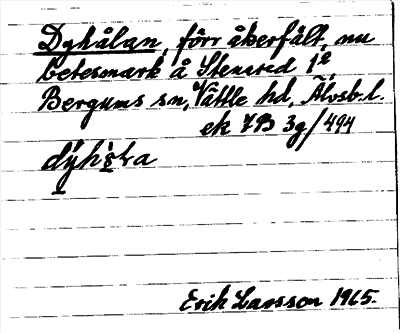 Dyhålan, förr åkerfält, nu
betesmark å Stenared 1²
Bergums sn, Vättle hd, Älvsb. l.
ek 7B 3g/494
Erik Larsson 1965.